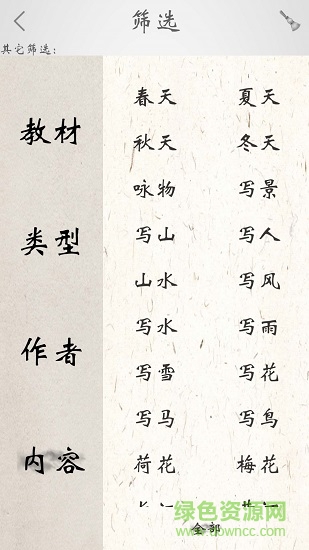 筛选
其它筛选:
教材
类型
作者
内容
春天 夏天
秋天 冬天
咏物 写景
写山 写人
山水 写风
写水 写雨
写雪 写花
写马 写鸟
荷花 梅花
全部
绿色资源网
www.downcc.com